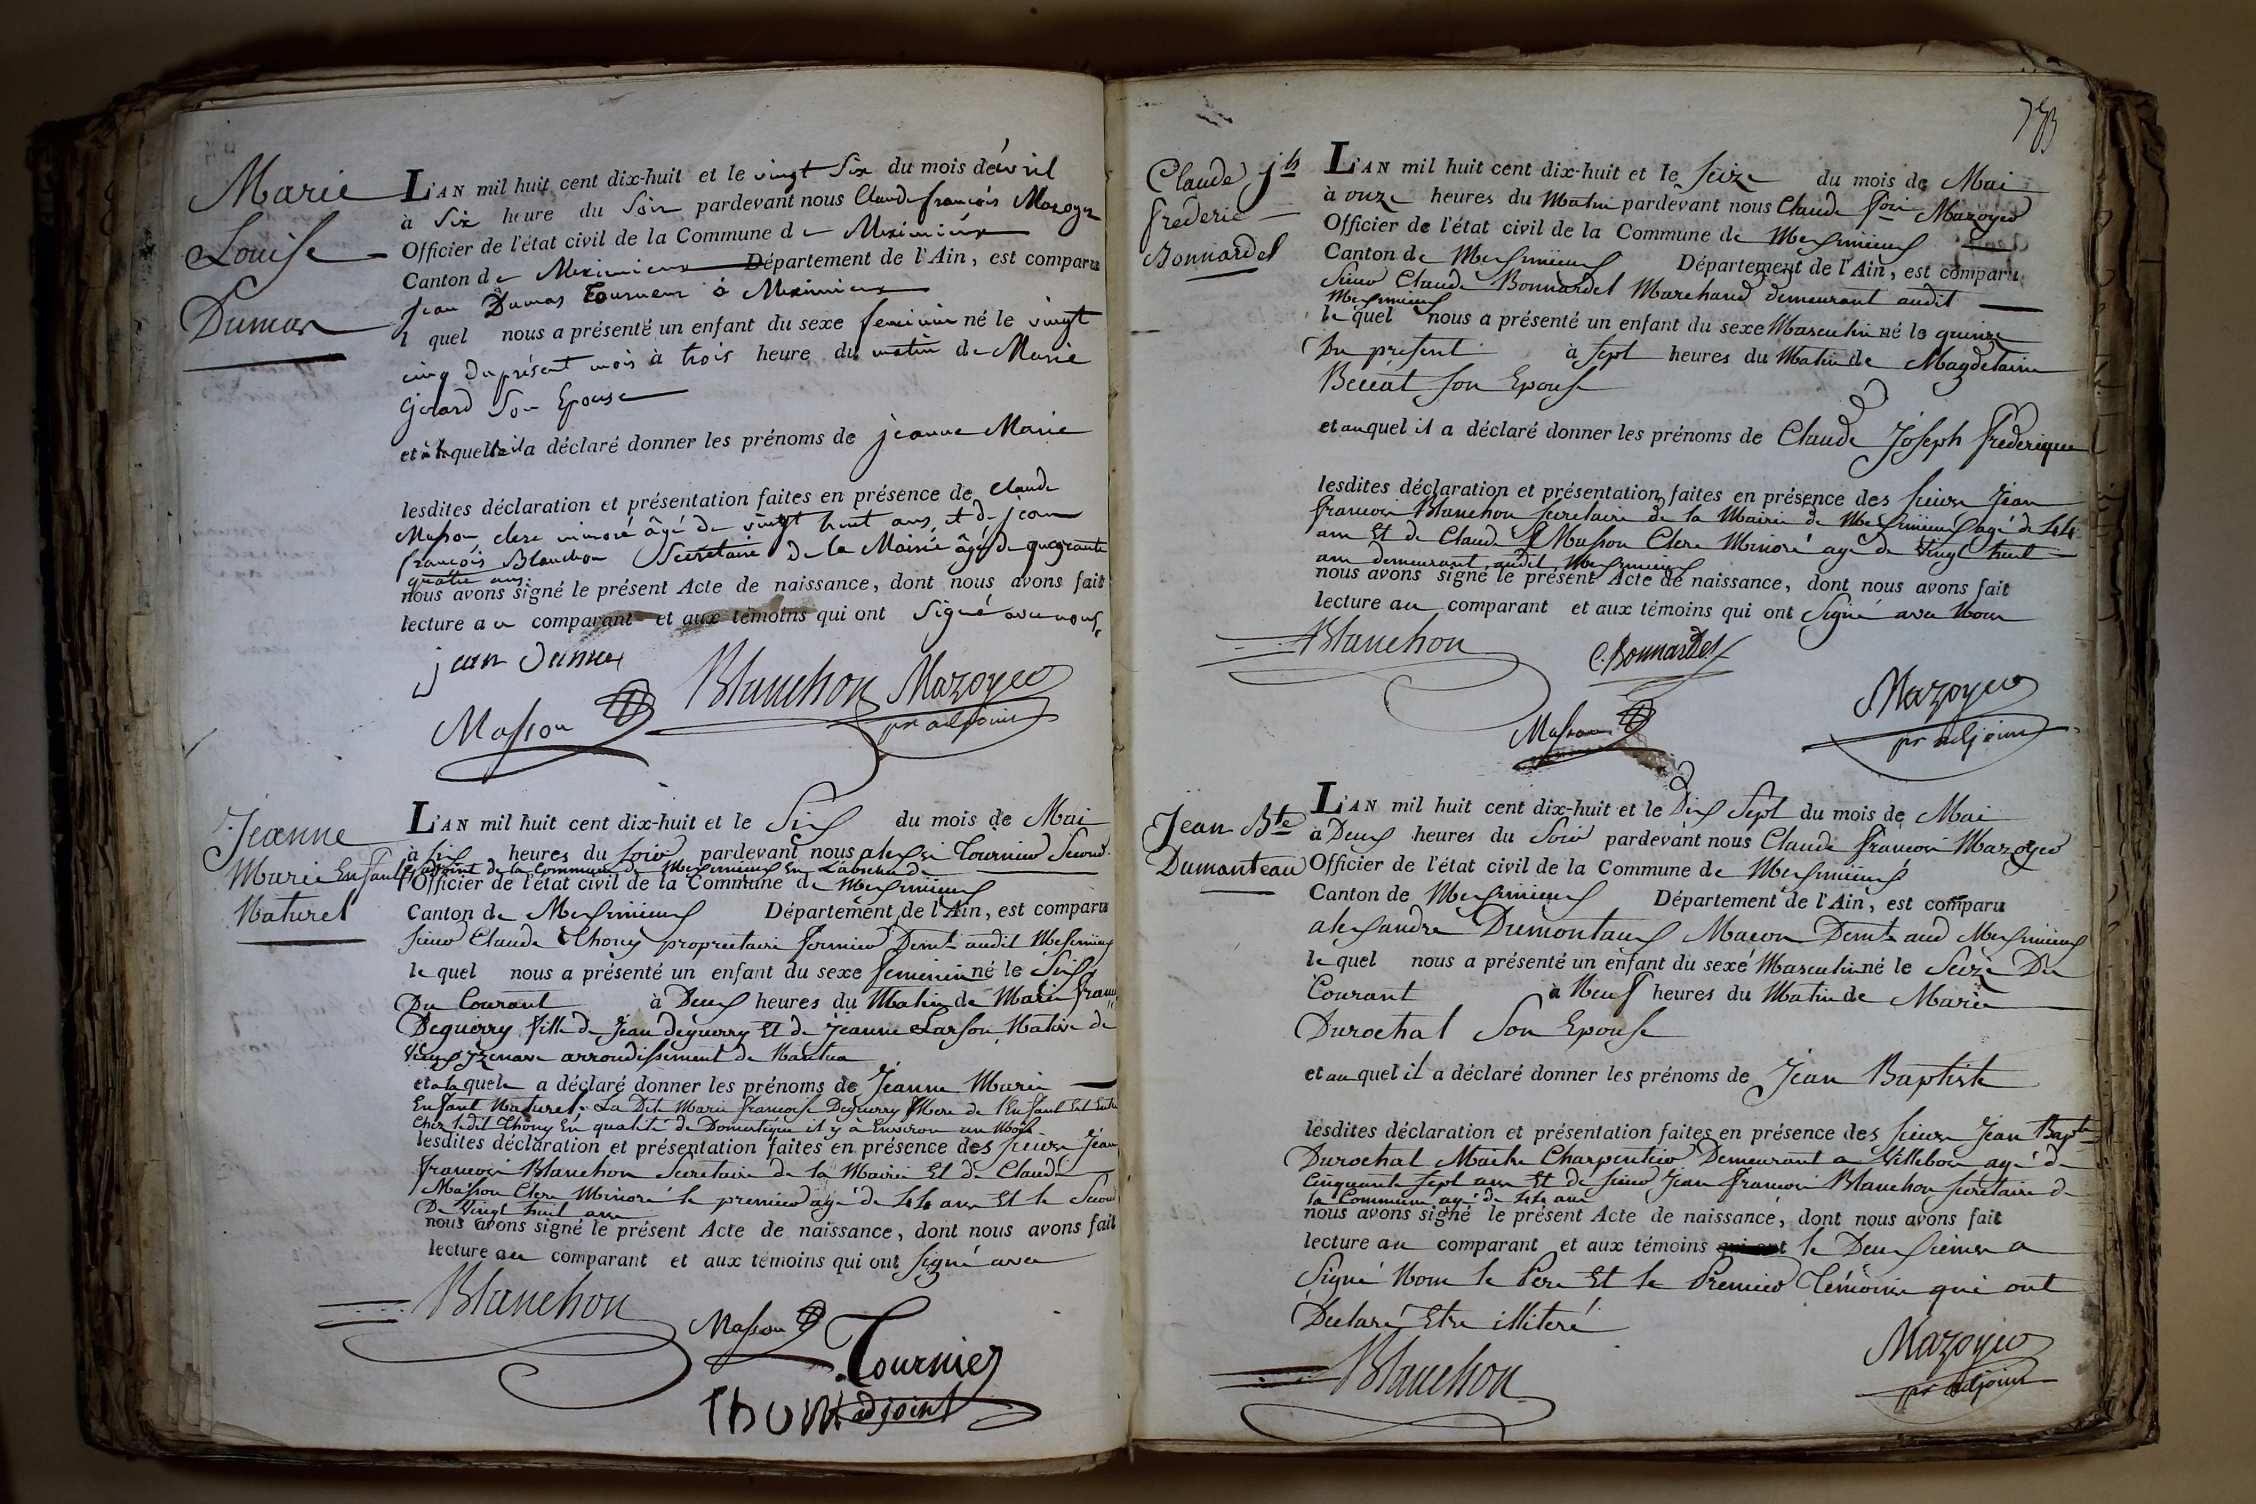 Marie
Louise
Dumas
L'AN mil huit cent dix-huit et le vingt Six du mois d'avril
à Six heure du Soir pardevant nous Claude françois Mazoyer
Officier de l'état civil de la Commune de Meximieux
Canton de Meximieux Département de l'Ain, est comparu
Jean Dumas Tourneur à Meximieux
l quel nous a présenté un enfant du sexe feminin né le vingt
cinq du présent mois à trois heure du matin de Marie
Gerard Son Epouse
et à laquelle il a déclaré donner les prénoms de jeanne Marie
lesdites déclaration et présentation faites en présence de Claude
Masson clerc minoré âgé de vingt huit ans et de jean
françois Blanchon Secretaire de la Mairie âgé de quarante
quatre ans
nous avons signé le présent Acte de naissance, dont nous avons fait
lecture au comparant et aux témoins qui ont Signé avec nous
jean dumas
Blanchon Mazoyer
Masson pr adjoint
Jeanne
Marie Enfant
Naturel
L'AN mil huit cent dix-huit et le Six du mois de Mai
à Six heures du Soir pardevant nous alexi Tournier Second
adjoint de la Commune de Meximieux En L'absence du
Officier de l'état civil de la Commune de Meximieux
Canton de Meximieux Département de l'Ain, est comparu
sieur Claude Thony proprietaire fermier Demt audit Meximieux
le quel nous a présenté un enfant du sexe feminin né le Six
Du Courant à Deux heures du Matin de Marie franse
Deguerry fille de Jean deguerry Et de Jeanne Larson Native de
Vieux Yzenave arrondissement de Nantua
et a la quele a déclaré donner les prénoms de Jeanne Marie
Enfant Naturel. La Dite Marie francoise Deguerry Mere de l'Enfant Est Entré
chez ledit Thony En qualité de Domestique il y à Environ un Mois
lesdites déclaration et présentation faites en présence des sieurs Jean
francois Blanchon Secretaire de la Mairie Et de Claude
Masson Clerc Minoré le premier agé de 44 ans Et le Second
De Vingt huit ans
nous avons signé le présent Acte de naissance, dont nous avons fait
lecture au comparant et aux témoins qui ont Signé avec
Blanchon
Masson Tournier
Thony adjoint
753
Claude jh
frederic
Bonnardel
L'AN mil huit cent dix-huit et le Seize du mois de Mai
à onze heures du Matin pardevant nous Claude fcois Mazoyer
Officier de l'état civil de la Commune de Meximieux
Canton de Meximieux Département de l'Ain, est comparu
Sieur Claude Bonnardel Marchand demeurant audit
Meximieux
le quel nous a présenté un enfant du sexe Masculin né le quinze
Du present à sept heures du Matin de Magdelaine
Beccat son Epouse
et auquel il a déclaré donner les prénoms de Claude Joseph frederique
lesdites déclaration et présentation faites en présence des sieurs Jean
francois Blanchon secretaire de la Mairie de Meximieux agé de 44
ans Et de Claude Masson Clerc Minoré agé de Vingt huit
ans demeurant audit Meximieux
nous avons signé le présent Acte de naissance, dont nous avons fait
lecture au comparant et aux témoins qui ont Signé avec Nous
Blanchon C. Bonnardel
Masson Mazoyer
pr adjoint
Jean Bte
Dumonteau
L'AN mil huit cent dix-huit et le Dix Sept du mois de Mai
à Deux heures du Soir pardevant nous Claude francois Mazoyer
Officier de l'état civil de la Commune de Meximieux
Canton de Meximieux Département de l'Ain, est comparu
alexandre Dumontaux Macon Demt aud Meximieux
le quel nous a présenté un enfant du sexe Masculin né le Seize Du
Courant à Neuf heures du Matin de Marie
Durochat Son Epouse
et auquel il a déclaré donner les prénoms de Jean Baptiste
lesdites déclaration et présentation faites en présence des sieurs Jean Bapte
Durochat Maitre Charpentier Demeurant a Villebois agé de
Cinquante sept ans Et de sieur Jean francois Blanchon secretaire de
la Commune agé de 44 ans
nous avons signé le présent Acte de naissance, dont nous avons fait
lecture au comparant et aux témoins qui ont le Deuxiemes a
Signé Nom le Pere Et le Premier Témoins qui ont
Declaré Etre illiteré
Blanchon Mazoyer
pr adjoint